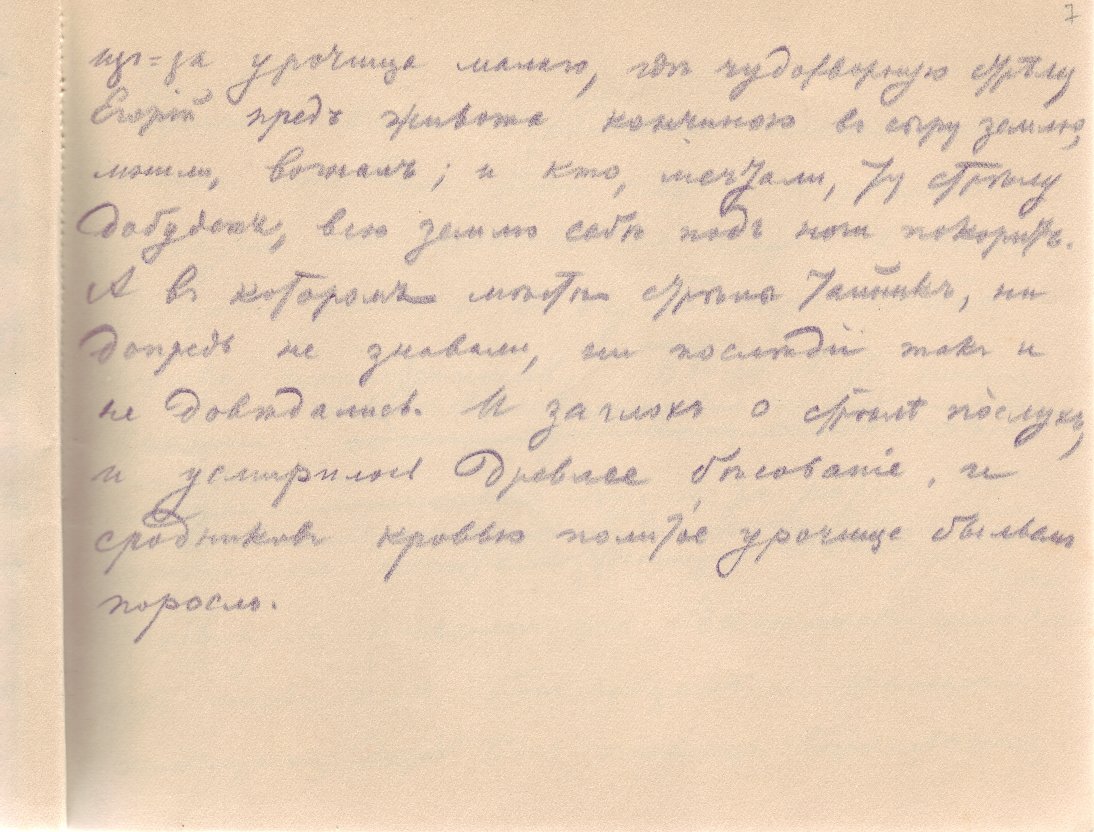 7
изъ=за урочища малаго, гдѣ чудотворную стрѣлу
Егорій предъ живота кончиною въ сыру землю,
мнили, вогналъ; и кто, мечтали, ту стрѣлу
добудетъ, всю землю себѣ подъ ноги покоритъ.
А въ которомъ мѣстѣ стрѣлы тайникъ, ни
допредь не знавали, ни послѣди такъ и
не довѣдались. И заглохъ о стрѣлѣ послухъ,
и усмирилось древлее бѣсованіе, и
сродниковъ кровью политое урочище быльемъ
поросло.